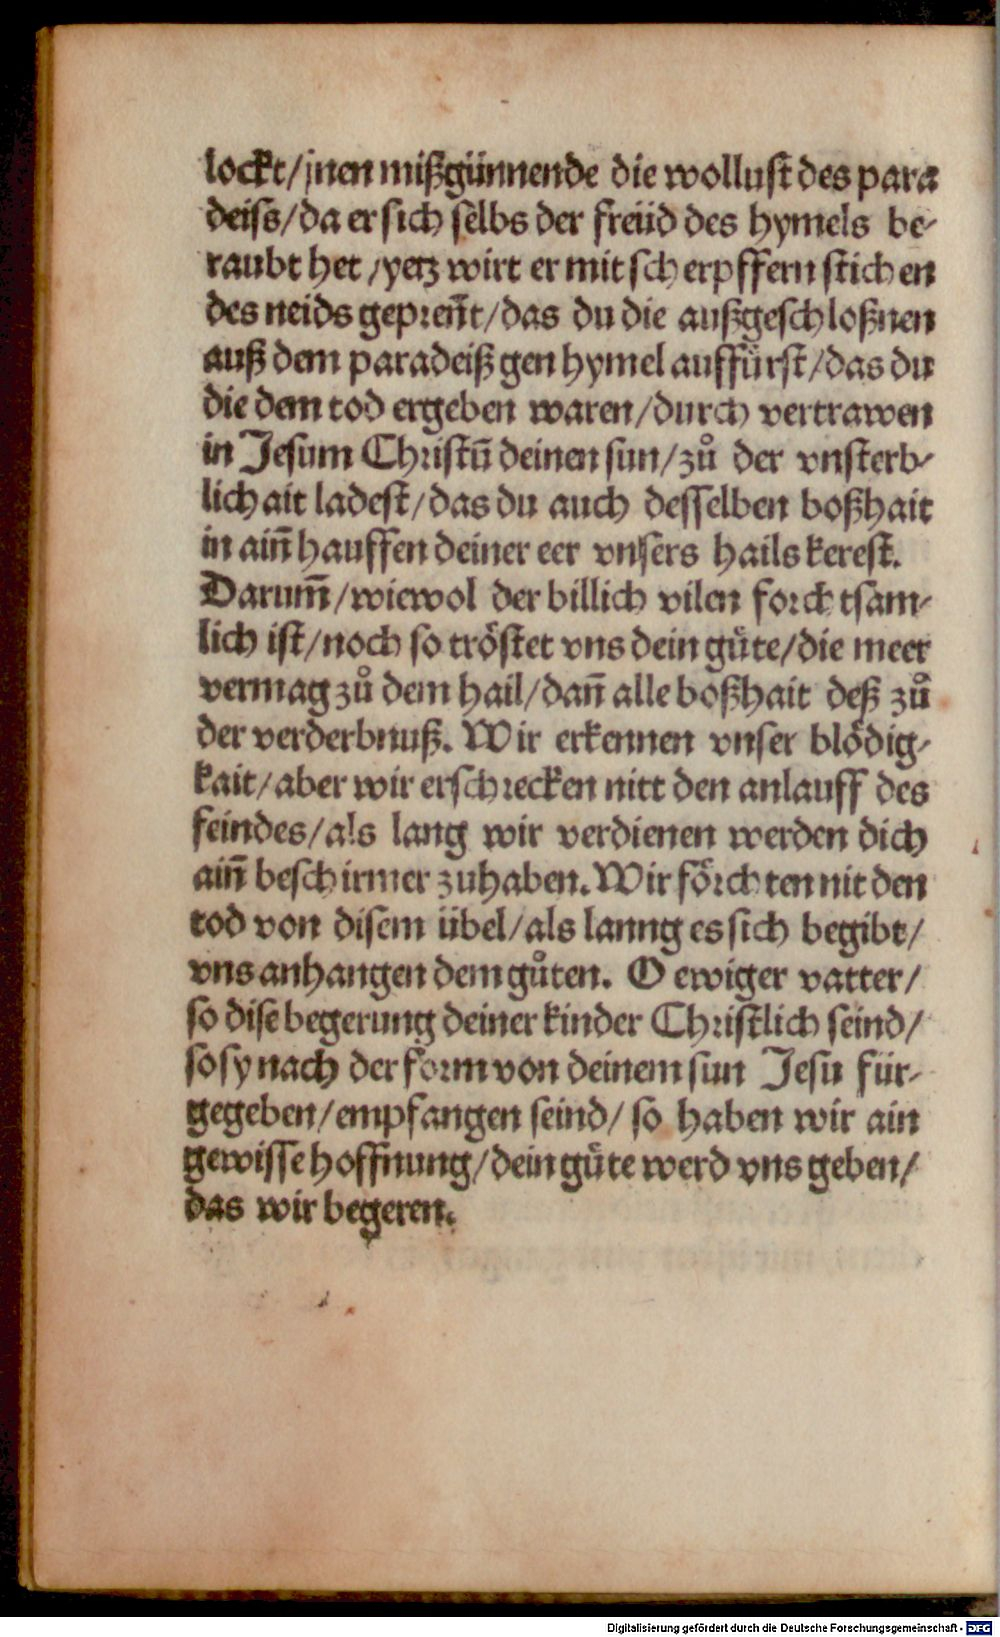 lockt/jnen mißgünnende die wollust des para
deiss/da er sich selbs der freüd des hymels be-
raubt het/yetz wirt er mit scherpffern stichen
des neids geprent̄/das du die außgeschloßnen
auß dem paradeiß gen hymel auffürst/das du
die dem tod ergeben waren/durch vertrawen
in Jesum Christū deinen sun/zů der vnsterb-
lichait ladest/das du auch desselben boßhait
in ain̄ hauffen deiner eer vnsers hails kerest.
Darum̄/wiewol der billich vilen forchtsam-
lich ist/noch so tröstet vns dein gu̇te/die meer
vermag zů dem hail/dan̄ alle boßhait deß zů
der verderbnuß. Wir erkennen vnser blödig-
kait/aber wir erschrecken nitt den anlauff des
feindes/als lang wir verdienen werden dich
ain̄ beschirmer zuhaben. Wir förchten nit den
tod von disem übel/als lanng es sich begibt/
vns anhangen dem gůten. O ewiger vatter/
so dise begerung deiner kinder Christlich seind/
so sy nach der form von deinem sun Jesu für-
gegeben/empfangen seind/so haben wir ain
gewisse hoffnung/dein gu̇te werd vns geben/
das wir begeren.
Digitalisierung gefördert durch die Deutsche Forschungsgemeinschaft - DFG